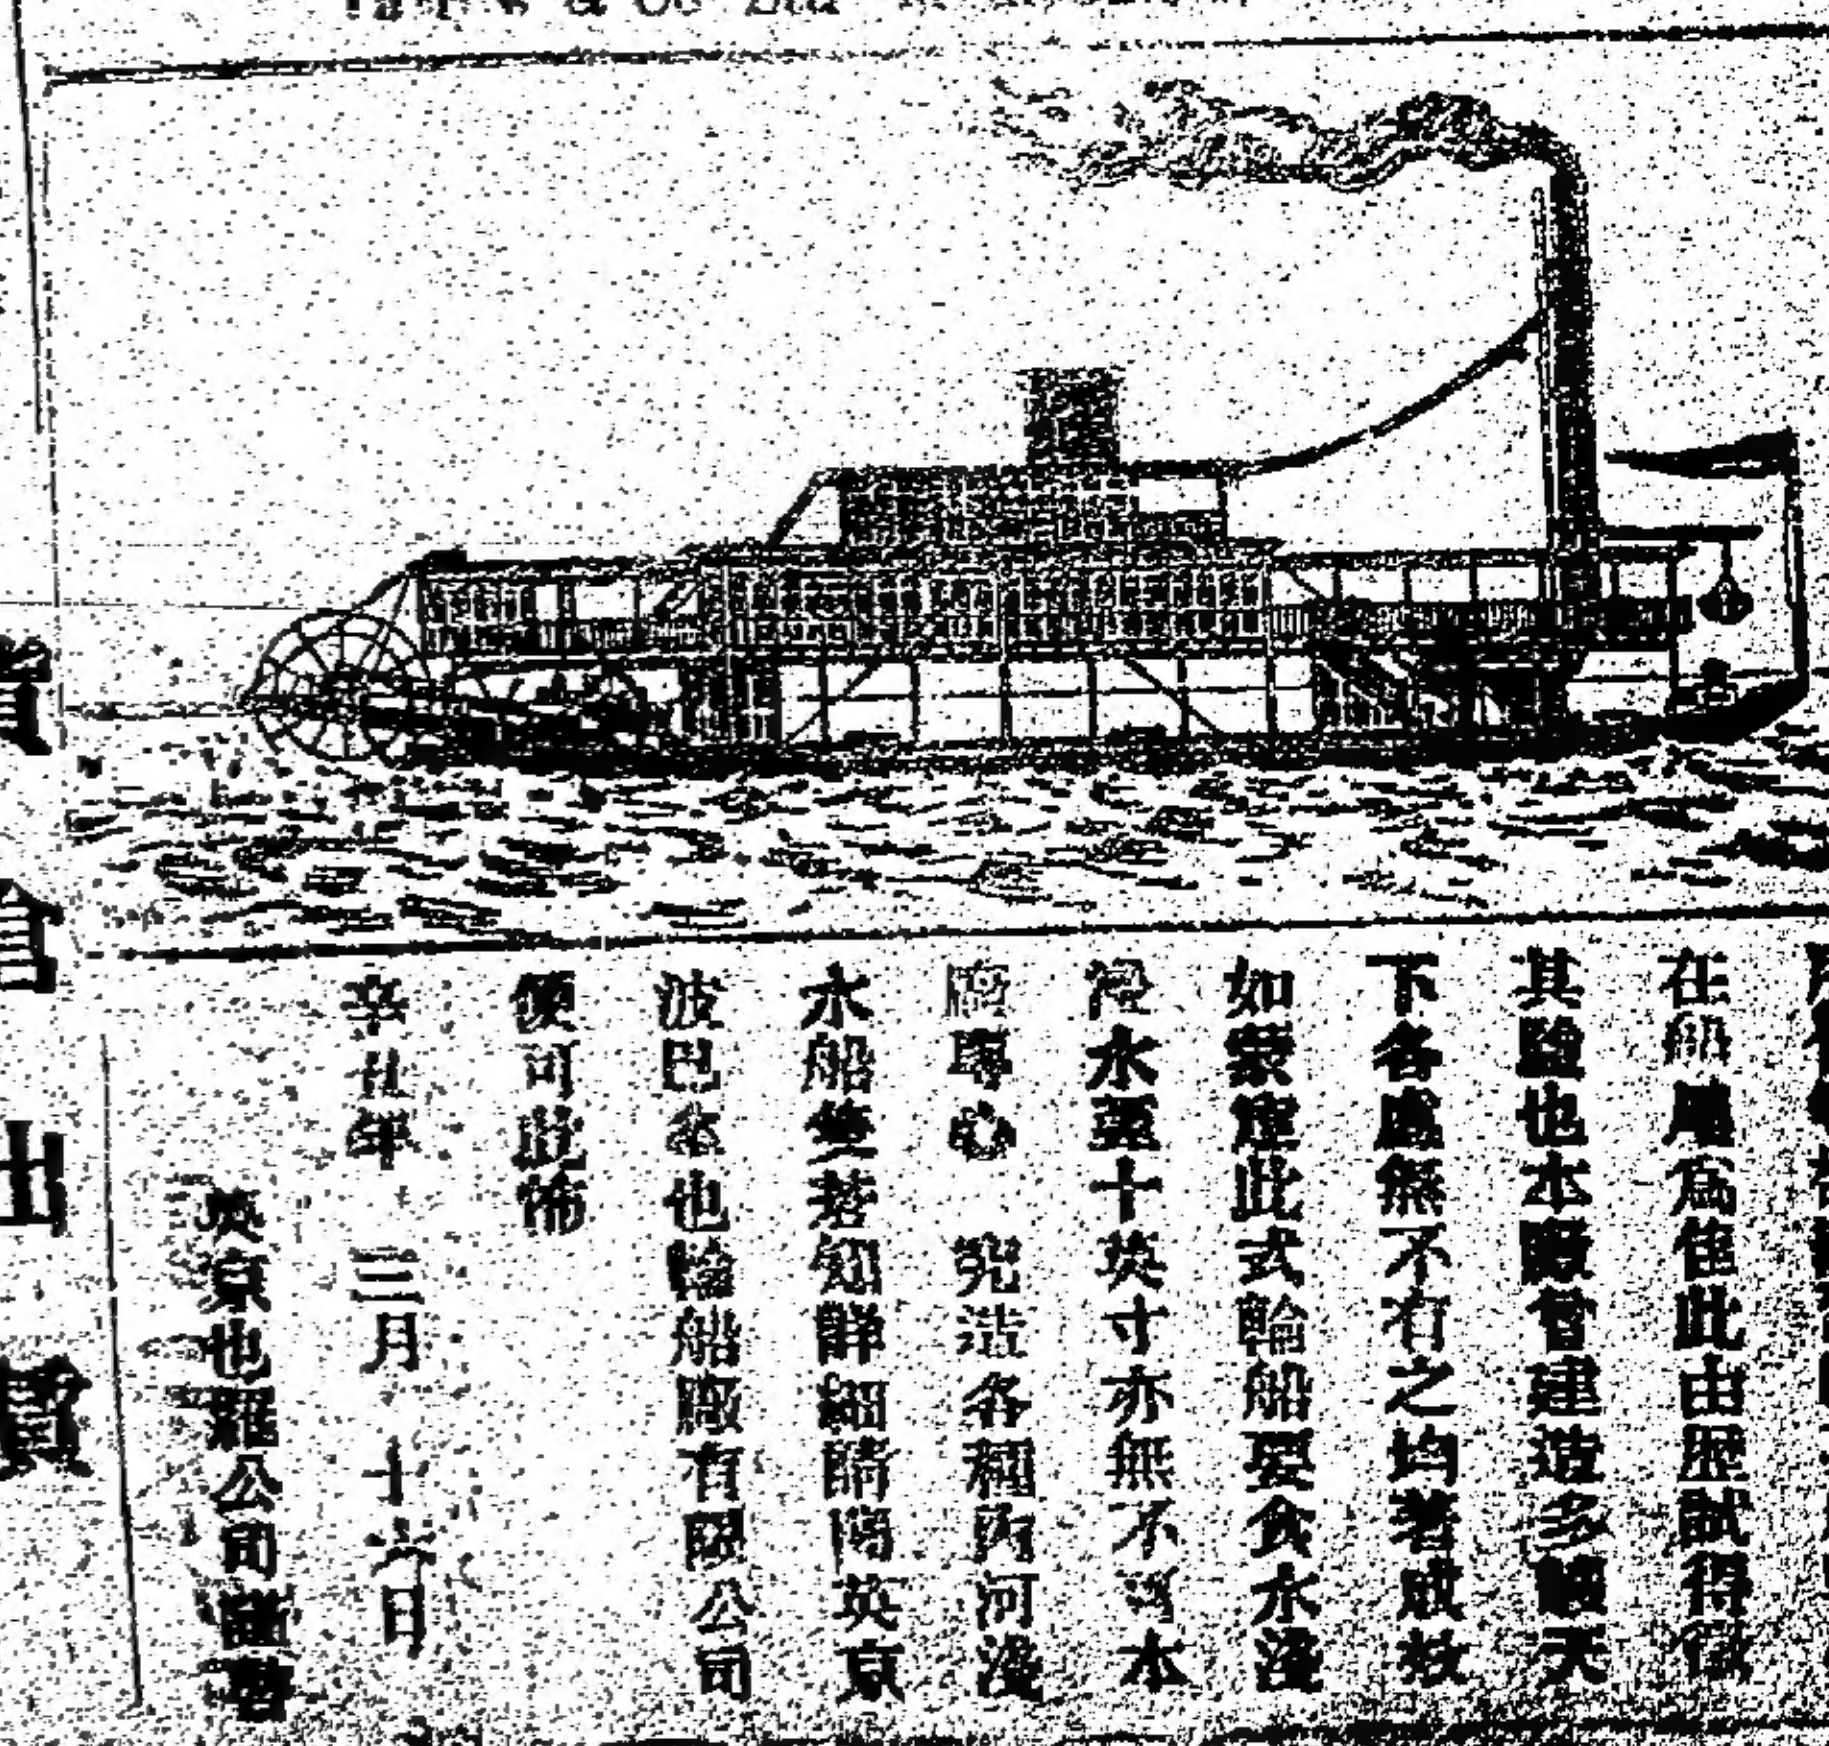 & Co Ltd
在船尾為佳此由歷試得徵
其驗也本廠曾建造多艘天
下各處無不有之均著成效
如蒙定此式輪船要食水淺
浸水至十英寸亦無不可本
廠專心 究造各種內河淺
水船隻若知詳細請問英京
波巴 也輪船廠有限公司
便可 佈
辛丑年 三月 十六日
英京也羅公司謹啓
貨倉出賃